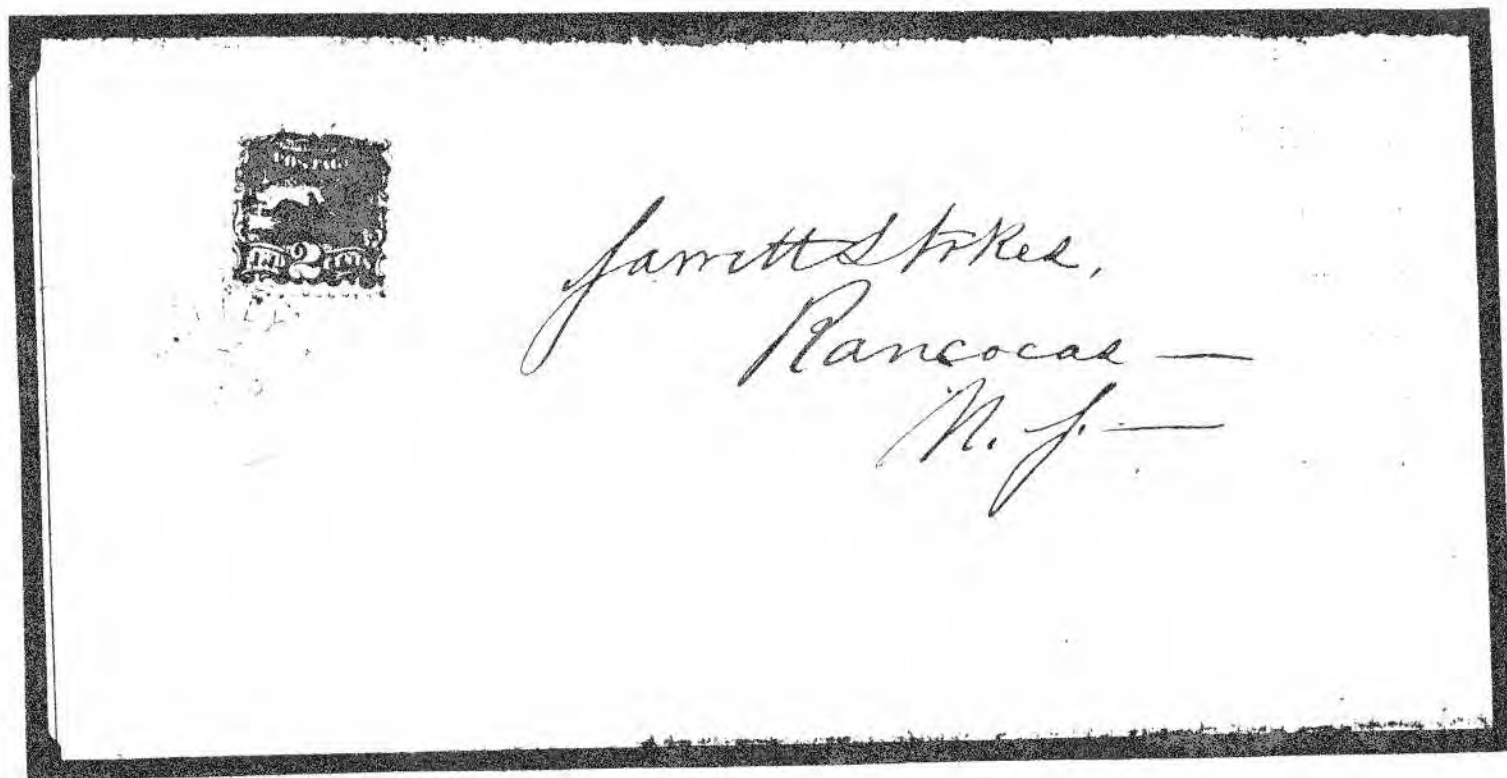 POSTAGE
2
Jarrett Stokes,
Rancocas —
N. J. —